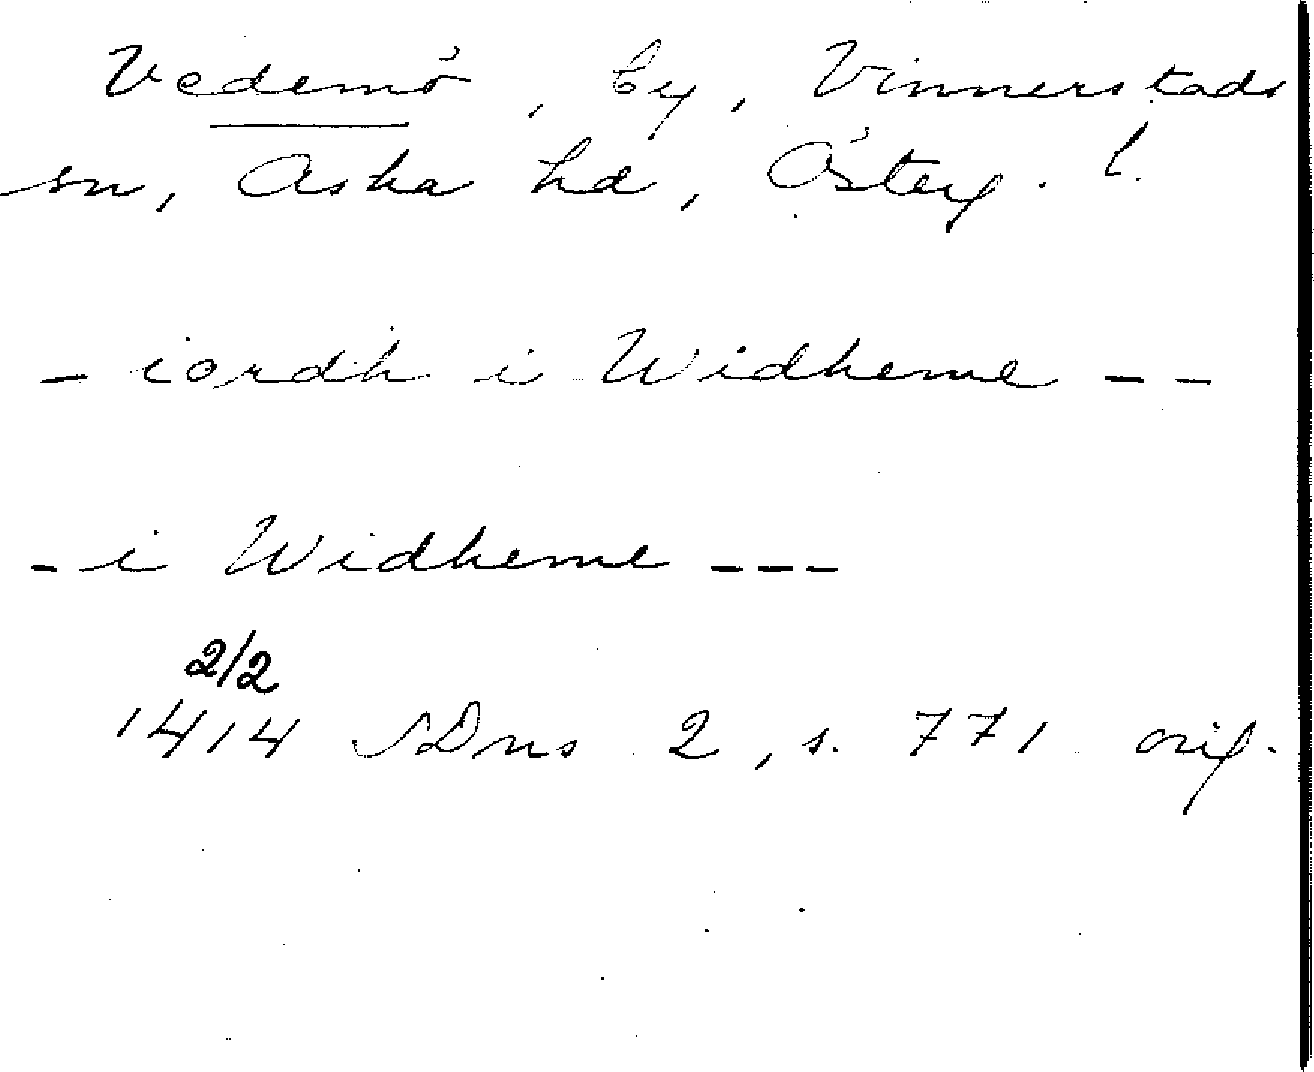 Vedemö, by, Vinnerstads
sn, Aska hd, Österg. l.
- iordh i Widheme --
- i Widheme ---
2/2
1414 SDns 2, s. 771 orig.